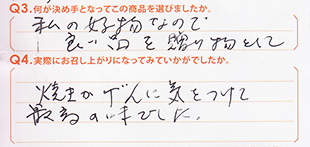 Q3.何が決め手となってこの商品を選びましたか。
私の好物なので
良い品を贈り物として
Q4.実際にお召し上がりになってみていかがでしたか。
焼きかげんに気をつけて
最高の味でした。